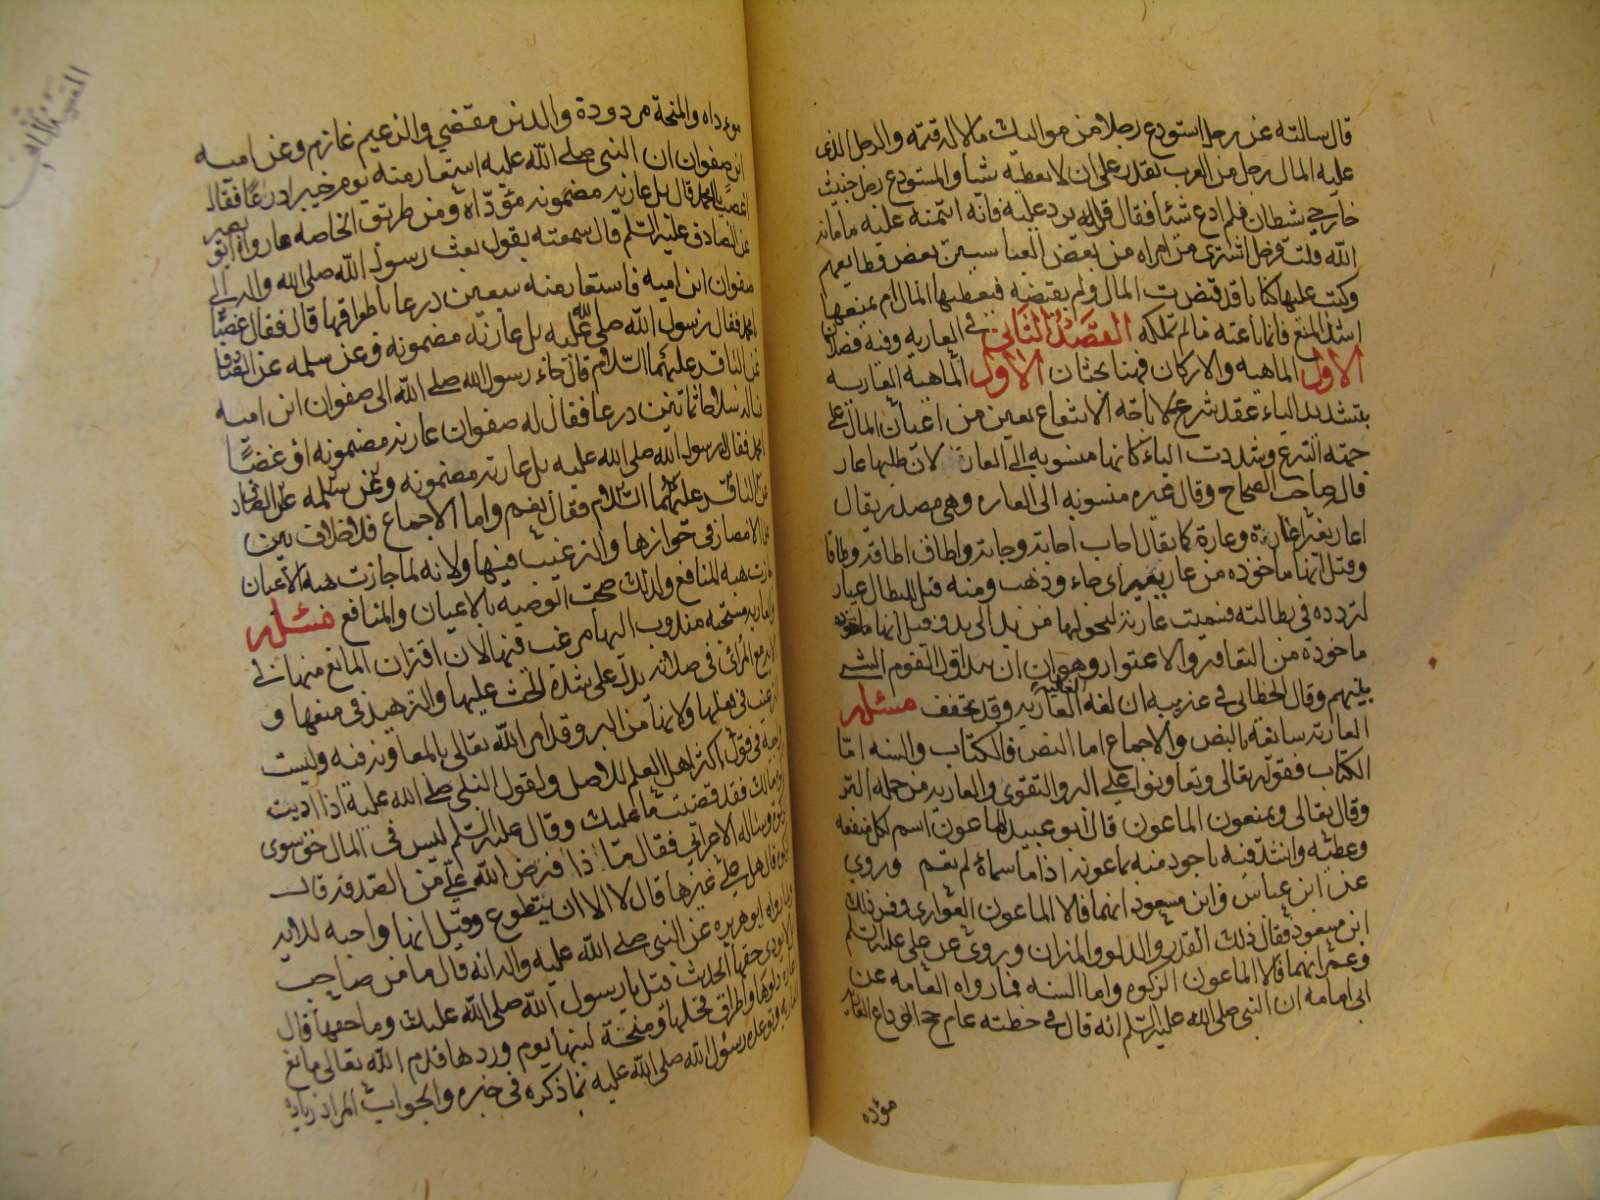 قال سالته عن رجل استودع رجلا من مواليك مالا له قيمة والرجل الذى
عليه المال رجل من العرب يقدر على ان لا يعطيه شيأ والمستودع رجل خبيث
خارجي شيطان فلم ادع شيئا فقال قل له يرد عليه فانه ائتمنه عليه بامانه
الله قلت فرجل اشترى من امراه من بعض العباسيين بعض قطايعهم
وكتب عليها كتابا قد قبضت المال ولم يقبضه فيعطيها المال ام يمنعها
المنع فانما باعته مالم تملكه الفصل الثاني في العاريه وفيه فصلان
الاول الماهيه والاركان فهنا بحثان الاول الماهية العاريه
بتشديد الياء عقد شرع لاباحه الانتفاع بعين من اعيان المال على
جهة التبرع وشددت الياء كانها منسوبه الى العار لان طلبها عار
قال صاحب الصحاح وقال غيره منسوبه الى العاره وهي مصدر يقال
اعار يعير اعارة وعارة كما يقال اجاب اجابة وجابة واطاق اطاقة وطاقا
وقيل انها ماخوذه من عار يعير اى جاء وذهب ومنه قيل للبطال عيار
لتردده في بطالته فسميت عارية لتحولها من يد الى يد وقيل انها
ماخوذة من التعاور والاعتوار وهو ان يتداول القوم الشي
بينهم وقال الخطابي في غريبه ان لغه العاليه العاريه وقد تخفف مسئله
العاريه سائغة بالنص والاجماع اما النص فالكتاب والسنه امّا
الكتاب فقوله تعالى وتعاونوا على البر والتقوى والعاريه من جمله البر
وقال تعالى ويمنعون الماعون قال ابو عبيد الماعون اسم لكل منفعه
وعطيه وانشد فيه باجود منه بماعونه اذا ما سماؤه لم تغم وروي
عن ابن عباس وابن مسعود انهما قالا الماعون العوارى وفسر ذلك
ابن مسعود فقال ذلك القدر والدلو والميزان وروى عن علي عليه السلم
وعمر انهما قالا الماعون الزكوه واما السنه فما رواه العامه عن
ابى امامه ان النبي صلى الله عليه السلم انه قال في خطبته عام حج الوداع العاريه
مؤداه
موءداه والمنحة مردودة والدين مقتضي والزعيم غارم وعن اميه
ابن صفوان ان النبى صلى الله عليه استعار منه يوم خيبر ادرعا فقال
اغصبا يا محمد قال بل عارية مضمونه مؤدّاه ومن طريق الخاصه ما رواه ابو بصير
عن الصادق عليه السلم قال سمعته يقول بعث رسول الله صلى الله واله الى
صفوان ابن اميه فاستعار منه سبعين درعا باطراقها قال فقال غصبًا
يا محمد فقال رسول الله صلى الله عليه بل عارية مضمونه وعن سلمه عن الصادق
عن الباقر عليهما السلام قال جاء رسول الله صلى الله الى صفوان ابن اميه
فساله سلاحا ثمانين درعا فقال له صفوان عارية مضمونه او غصبًا
يا محمد فقال رسول الله صلى الله عليه بل عارية مضمونه وعن سلمه عن الصادق
عن الباقر عليهما السلام فقال نعم واما الاجماع فلا خلاف بين
علماء الامصار في جوازها والترغيب فيها ولانه لما جازت هبة الاعيان
جازت هبه المنافع ولذلك صحت الوصيه بالاعيان والمنافع مسئله
والعاريه مستحبه مندوب اليها مرغب فيها لان اقتران المانع منها
مع المرائي في صلاته يدل على شدة الحث عليها والترهيد في منعها و
الترغيب في فعلها ولانها من البر وقد امر الله تعالى بالمعاونه فيه وليست
واجبة في قول اكثر اهل العلم للاصل ولقول النبى صلى الله عليه اذا اديت
زكوة مالك فقد قضيت ما عليك وقال عليه السلم ليس في المال حق سوى
الزكوة وساله الاعرابي فقال ماذا فرض الله علي من الصدقه قال
الزكوة قال هل علي غيرها قال لا الا ان تتطوع وقيل انها واجبه للايه
ولما رواه ابو هريره عن النبى صلى الله عليه واله انه قال ما من صاحب
ابل لا يودى حقها الحديث قيل يا رسول الله صلى الله عليك وما حقها قال
اعارة دلوها واطراق فحلها ومنحة لبنها يوم وردها فذم الله تعالى مانع
العاريه وتوعده رسول الله صلى الله عليه بما ذكره في خبره والجواب المراد زيادة